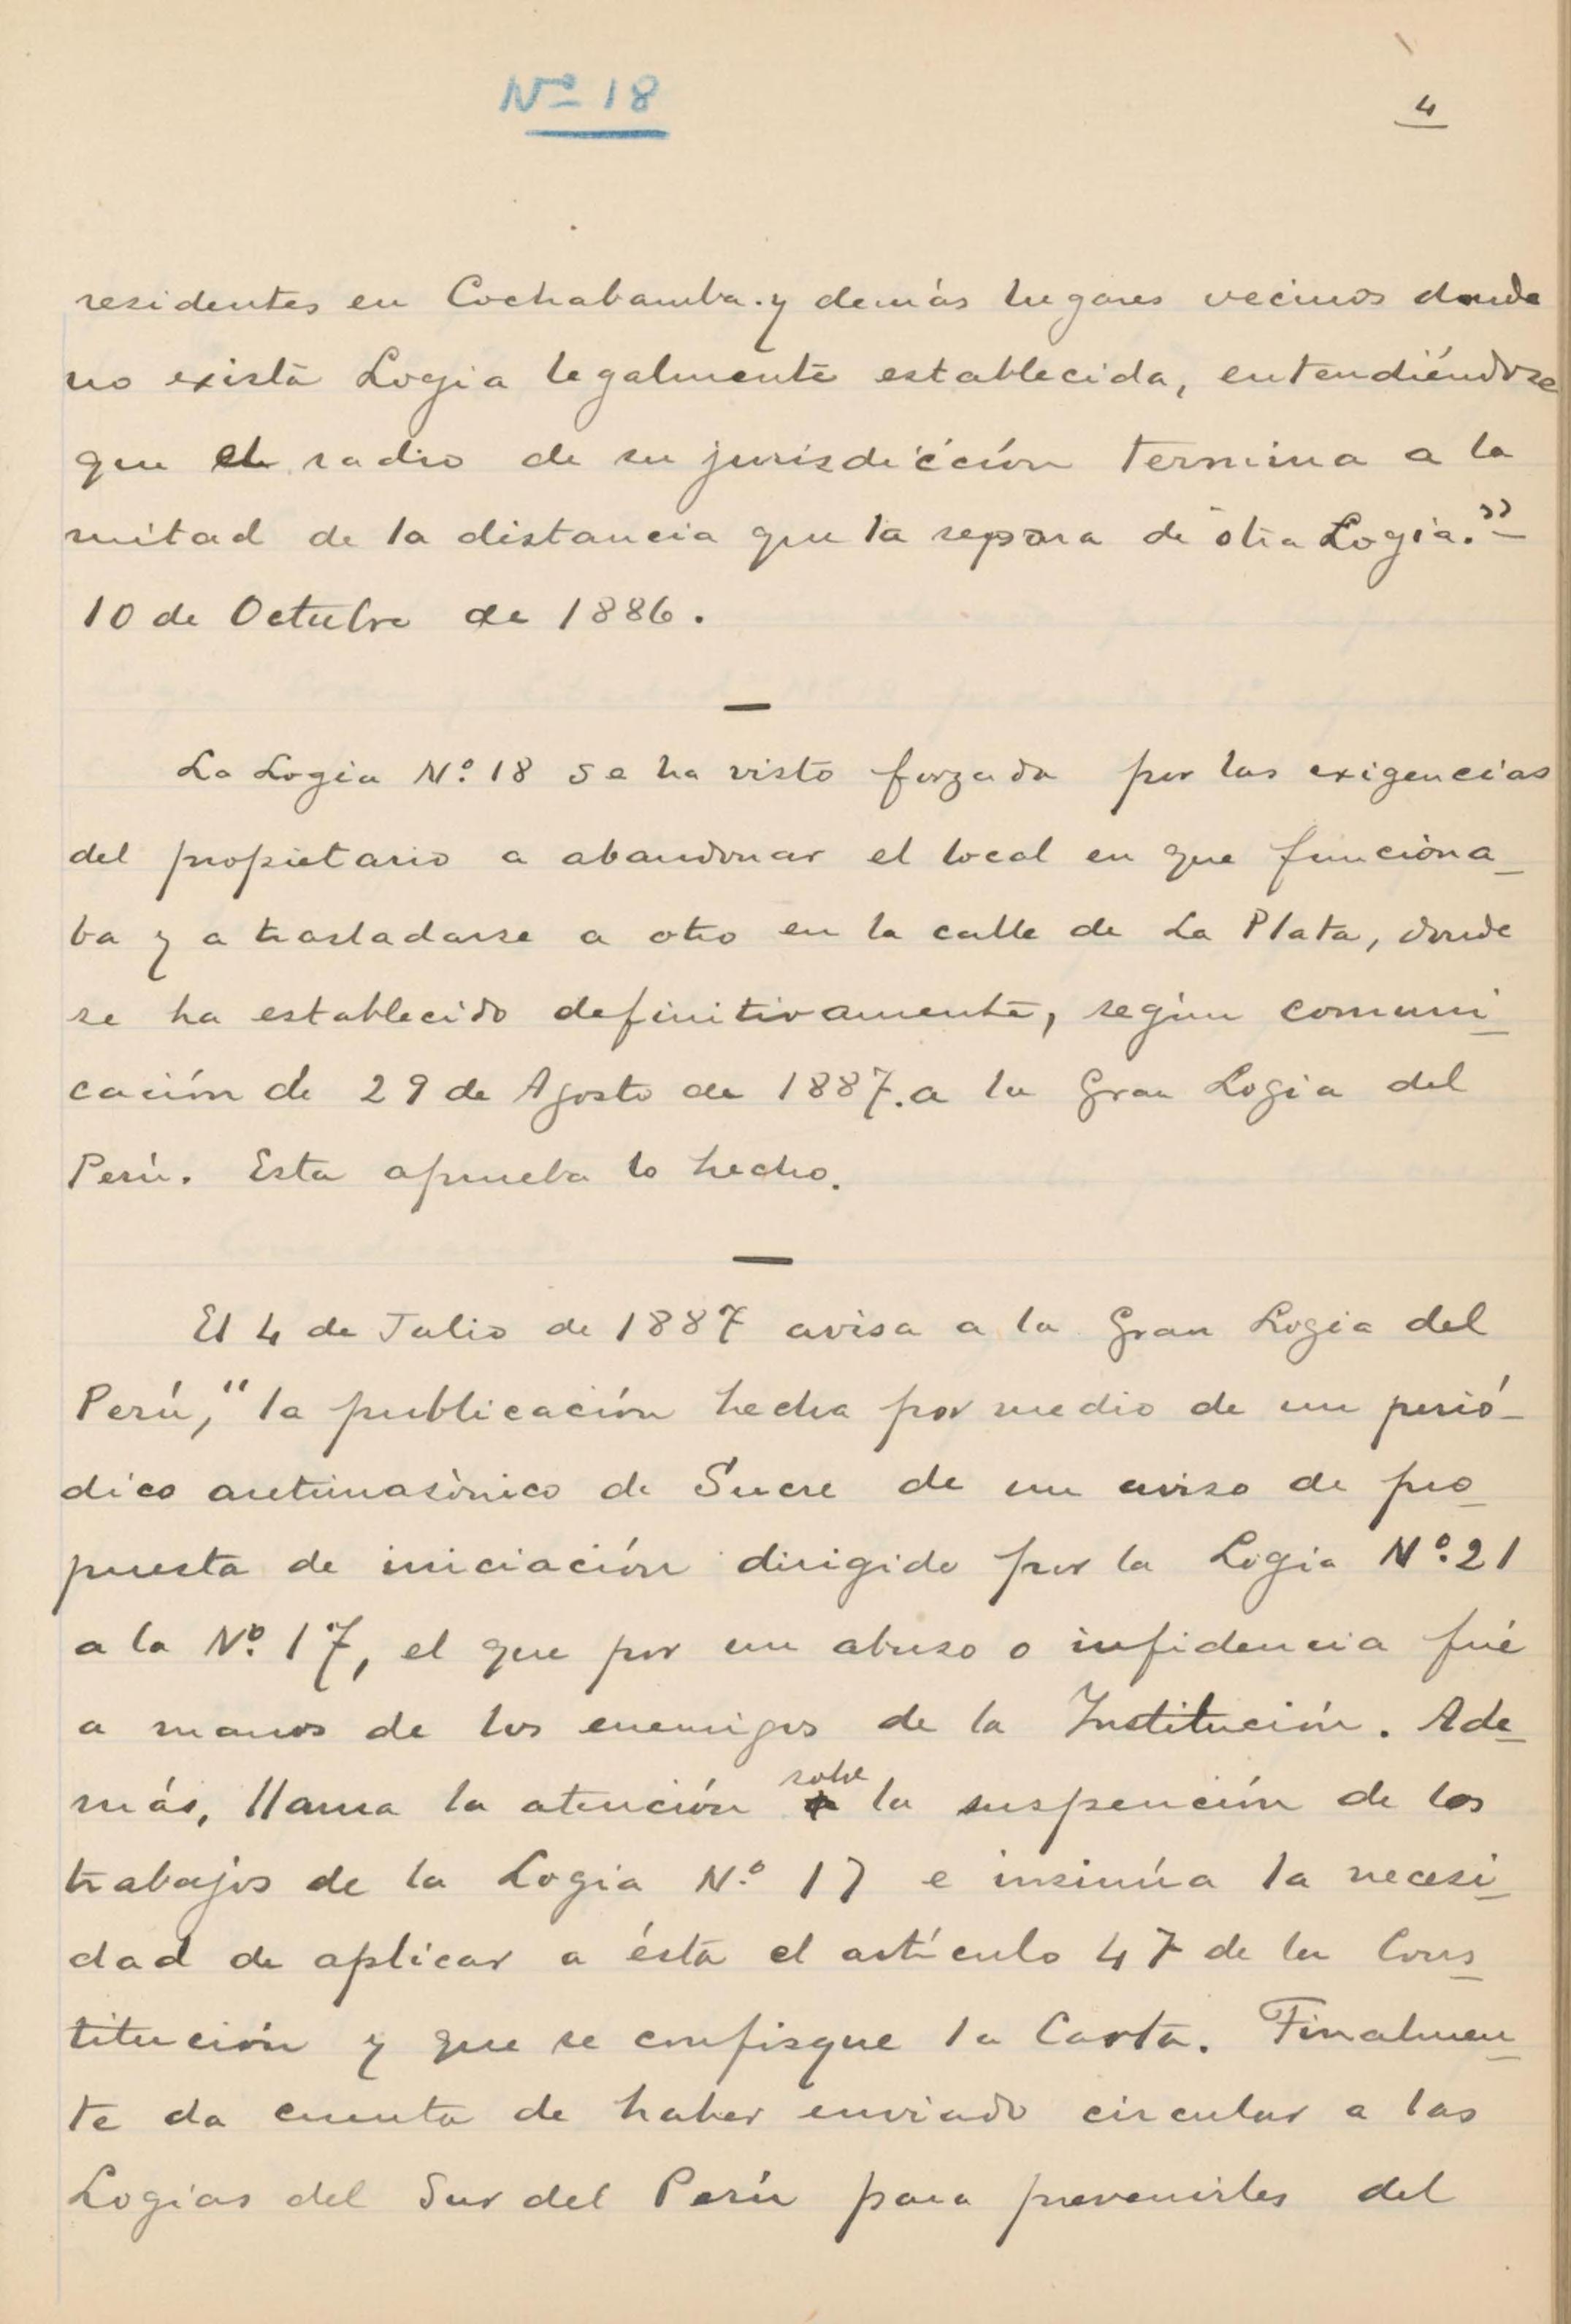 Nº 18
4
residentes en Cochabamba. y demás lugares vecinos donde
no exista Logia legalmente establecida, entendiéndose
que el radio de su jurisdicción termina a la
mitad de la distancia que la separa de otra Logia."—
10 de Octubre de 1886.
—
La Logia Nº. 18 se ha visto forzada por las exigencias
del propietario a abandonar el local en que funciona-
ba y a trasladarse a otro en la calle de La Plata, donde
se ha establecido definitivamente, según comuni-
cación de 29 de Agosto de 1887. a la Gran Logia del
Perú. Esta aprueba lo hecho.
—
El 4 de Julio de 1887 avisa a la Gran Logia del
Perú, "la publicación hecha por medio de un perió-
dico antimasónico de Sucre de un aviso de pro-
puesta de iniciación dirigido por la Logia Nº. 21
a la Nº. 17, el que por un abuso o infidencia fué
a manos de los enemigos de la Institución. Ade-
más, llama la atención sobre la suspención de los
trabajos de la Logia Nº. 17 e insinúa la necesi-
dad de aplicar a ésta el artículo 47 de la Cons-
titución y que se confisque la Carta. Finalmen-
te da cuenta de haber enviado circular a las
Logias del Sur del Perú para prevenirles del